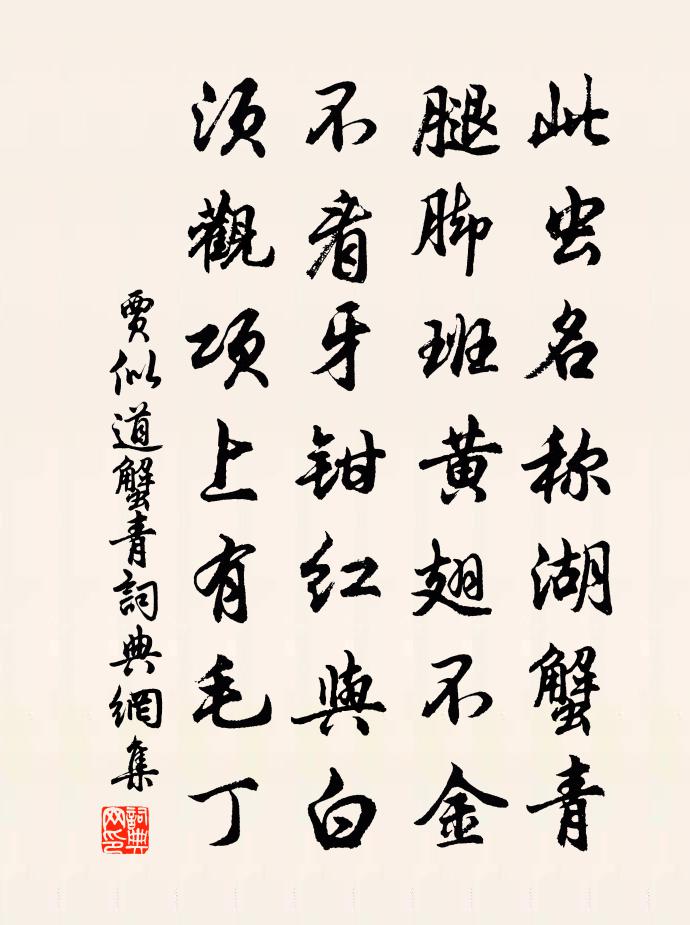 此虫名称湖蟹青
腿脚班黄翅不金
不看牙钳红與白
须觀项上有毛丁
賈似道蟹青詞典網集
詞典網印